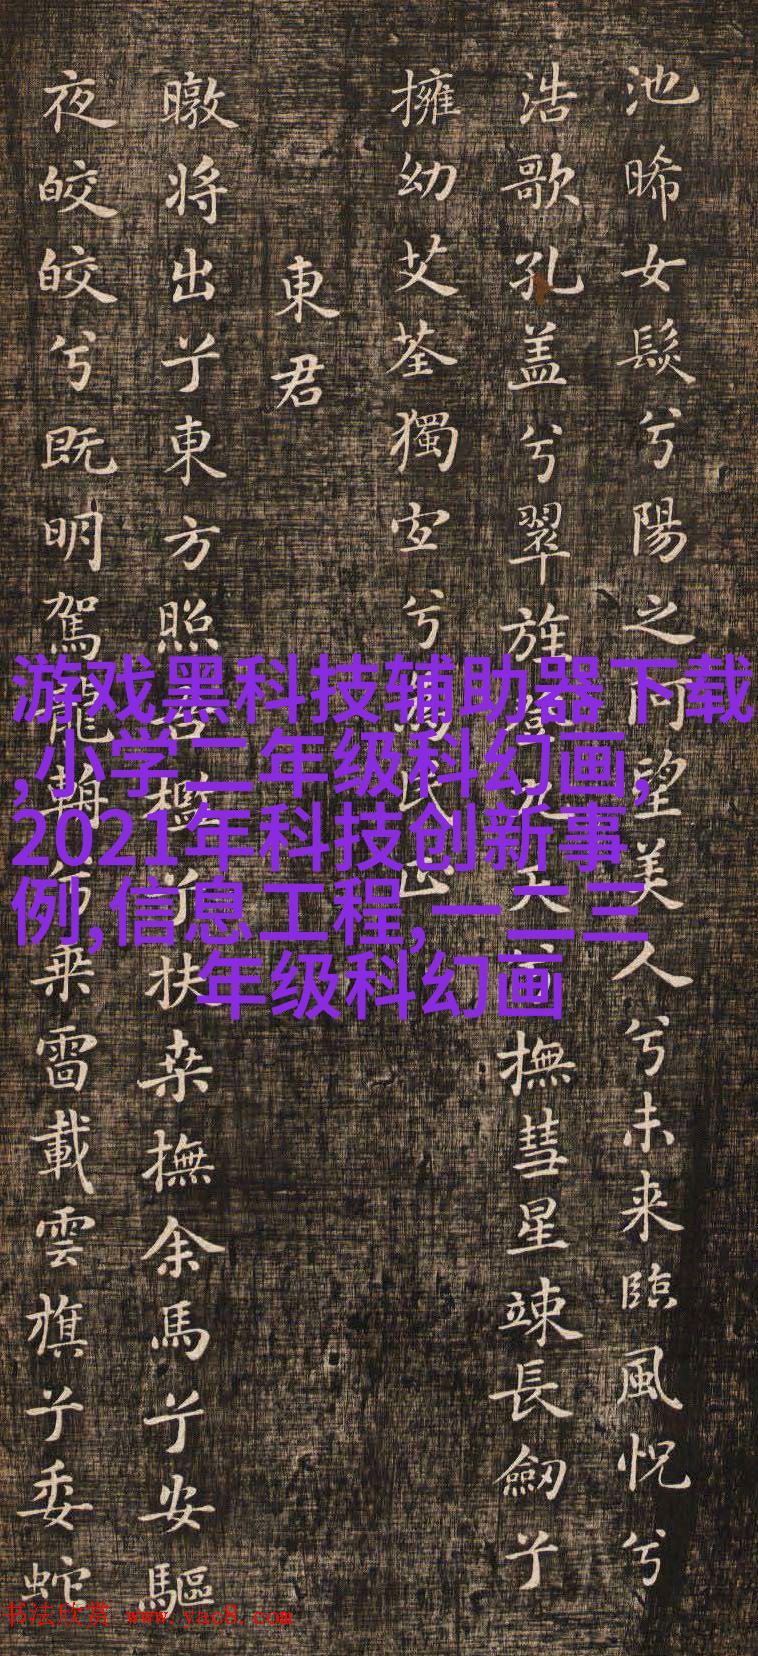 池晞女髮兮陽之阿望美人兮未来臨風怳兮
浩歌孔盖兮翠旌登九天兮撫彗星竦長劒兮
擁幼艾荃獨宜兮為民正
東君
暾将出兮東方照吾檻兮扶桒撫余馬兮安驅
夜皎皎兮既明駕龍輈兮乗雷載雲旗兮委蛇
游戏黑科技辅助器下载
,小学二年级科幻画,
2021年科技创新事
例,信息工程,一二三
年级科幻画
书法欣赏 www.yac8.com